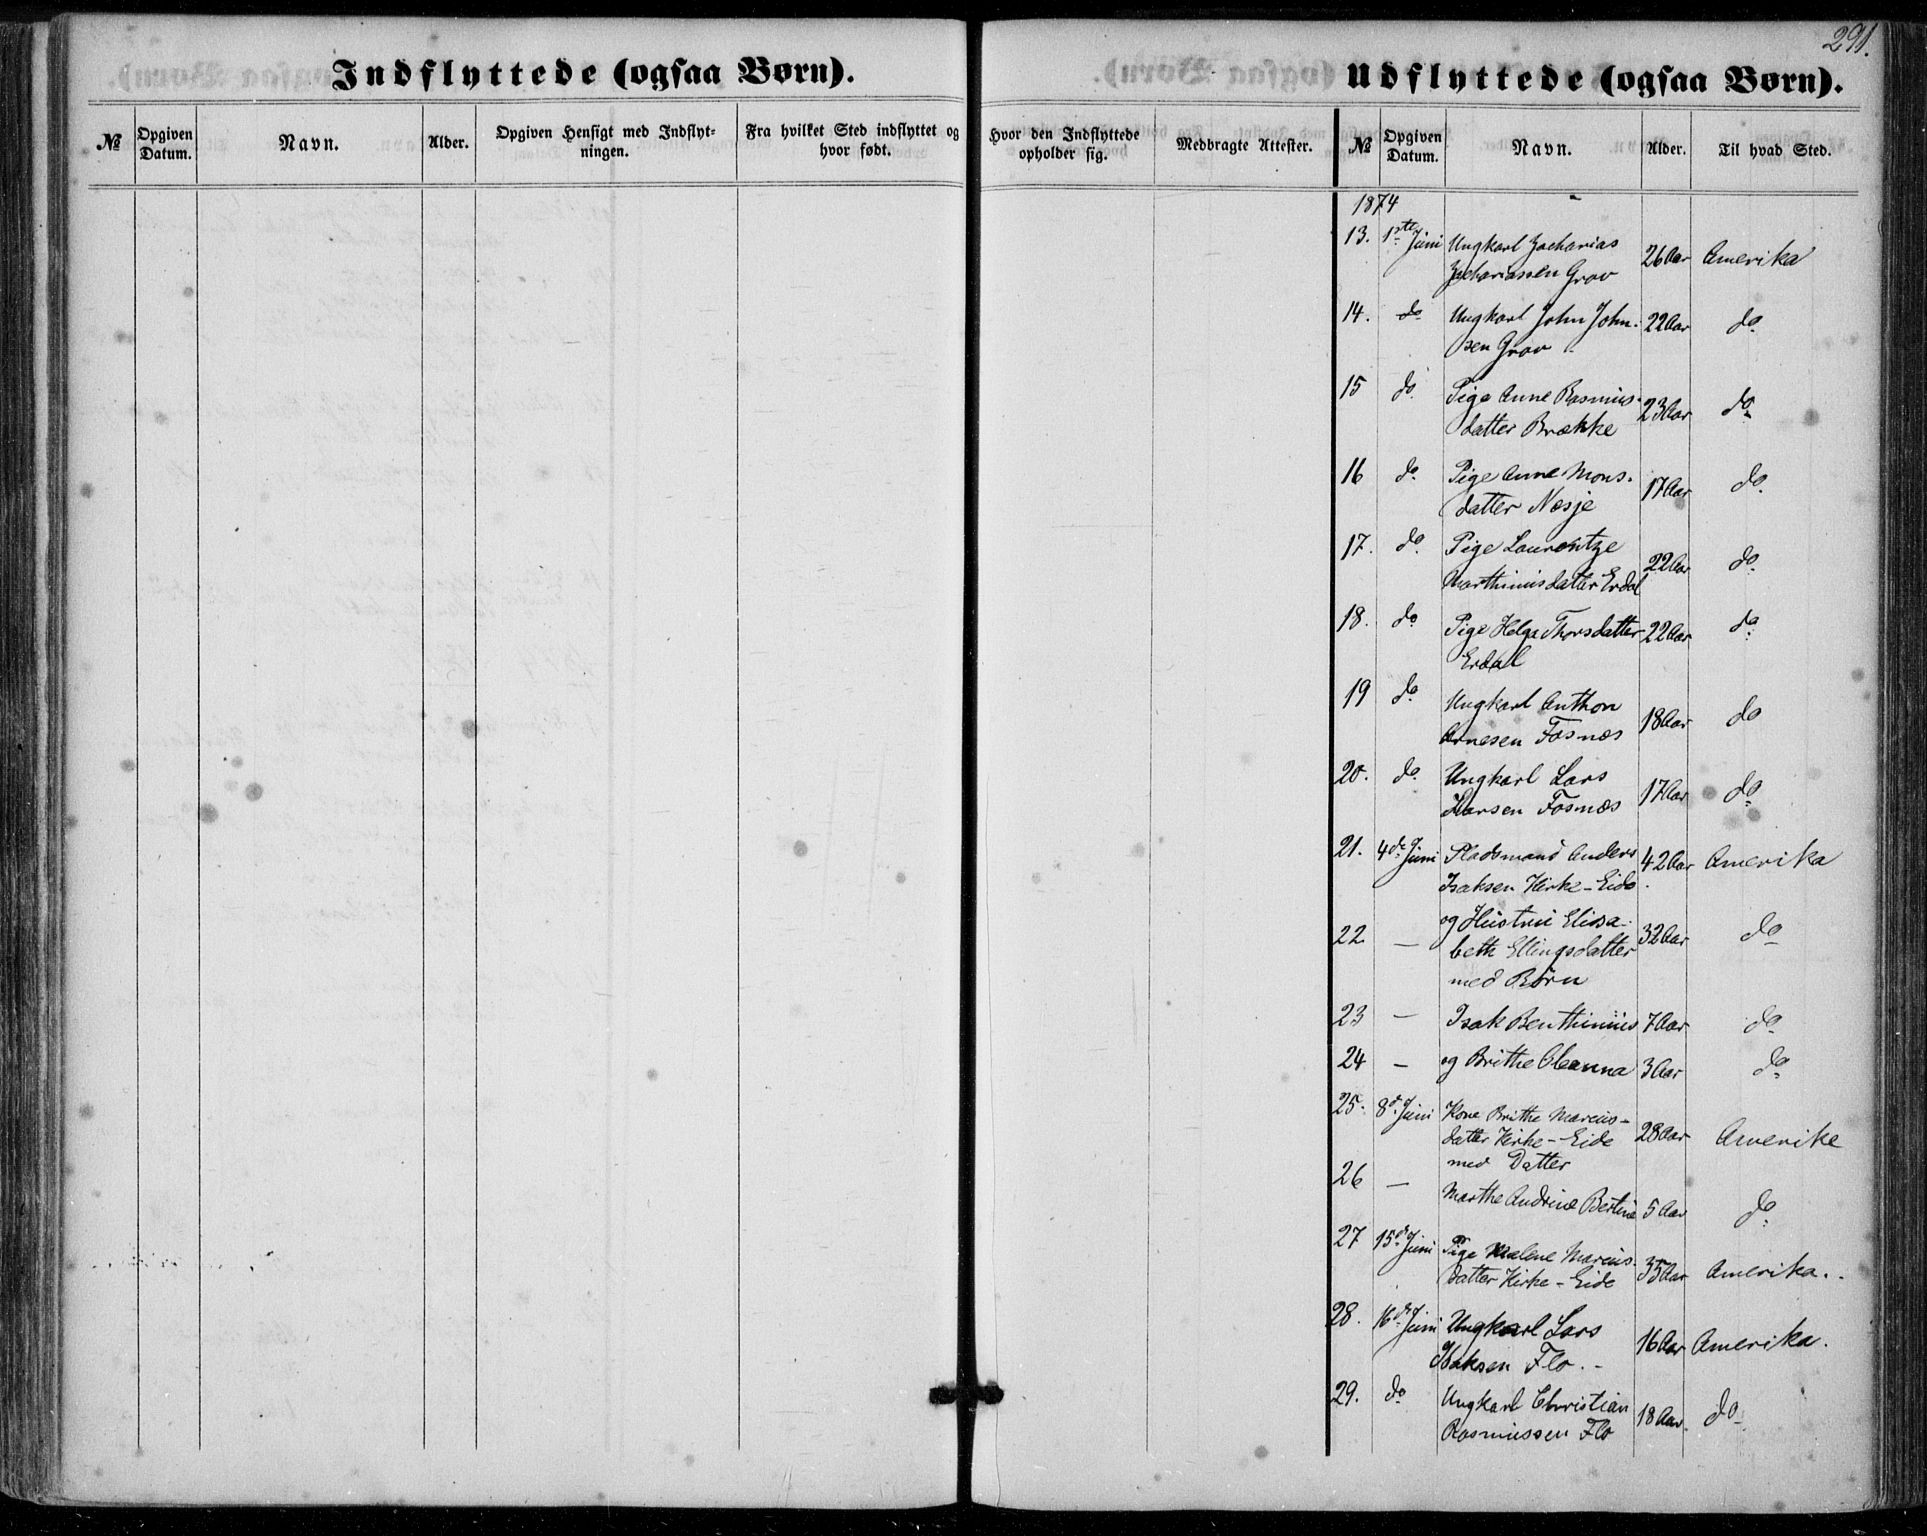 291.
Indflyttede (ogsaa Børn).
Udflyttede (ogsaa Børn).
№ Opgiven Datum. Navn. Alder. Opgiven Hensigt med Indflyt-
ningen. Fra hvilket Sted indflyttet og
hvor født. Hvor den Indflyttede
opholder sig. Medbragte Attester. № Opgiven Datum. Navn. Alder. Til hvad Sted.
1874
13. 1ste Juni Ungkarl Zacharias
Zachariassen Grov 26 Aar Amerika
14. do Ungkarl John John-
sen Grov 22 Aar do.
15 do. Pige Anne Rasmus-
datter Brække 23 Aar do.
16 do. Pige Anne Mons-
datter Nesje 17 Aar do.
17. do. Pige Laurentze
Marthinusdatter Erdal 22 Aar do.
18. do. Pige Helga Thorsdatter
Erdal 22 Aar do.
19 do. Ungkarl Anthon
Arnesen Fosnæs 18 Aar do
20. do. Ungkarl Lars
Larsen Fosnæs 17 Aar do
21. 4de Juni Pladsmand Anders
Isaksen Kirke-Eide 42 Aar Amerika
22 — og Hustru Elisa-
beth Ellingsdatter
med Børn 32 Aar do
23 — Isak Benthinius 7 Aar do
24 — og Brithe Oleanna 3 Aar do.
25. 8de Juni Kone Brithe Marcus-
datter Kirke-Eide
med Datter 28 Aar Amerika
26 — Marthe Andrine Bertine 5 Aar do.
27 15de Juni Pige Malene Marcus-
datter Kirke-Eide 35 Aar Amerika.
28. 16de Juni Ungkarl Lars
Isaksen Flo. 16 Aar Amerika.
29. do Ungkarl Christian
Rasmussen Flo 18 Aar. do